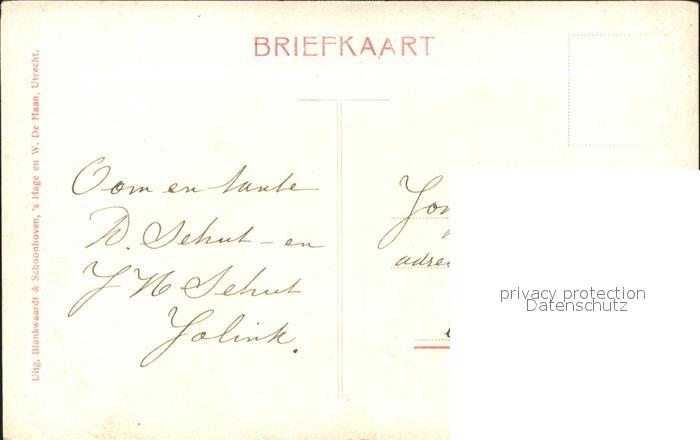 BRIEFKAART
Uitg. Blankwaardt & Schoonhoven, 's Hage en W. De Haan, Utrecht.
Oom en tante
D. Schut - en
J H Schut
Jolink.
Jon
adre
privacy protection
Datenschutz